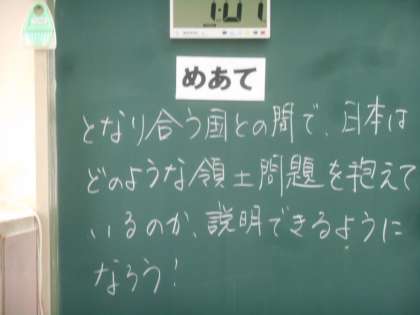 1:01
めあて
となり合う国との間で、日本は
どのような領土問題を抱えて
いるのか、説明できるように
なろう!